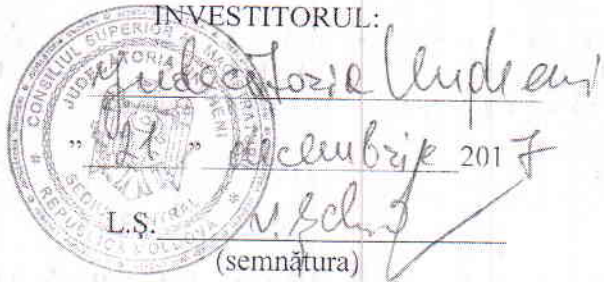 INVESTITORUL:
Judecătoria Ungheni
" 21 " decembrie 2017
L.Ș.
(semnătura)
CONSILIUL SUPERIOR AL MAGISTRATURII
JUDECĂTORIA UNGHENI
SEDIUL CENTRAL
REPUBLICA MOLDOVA